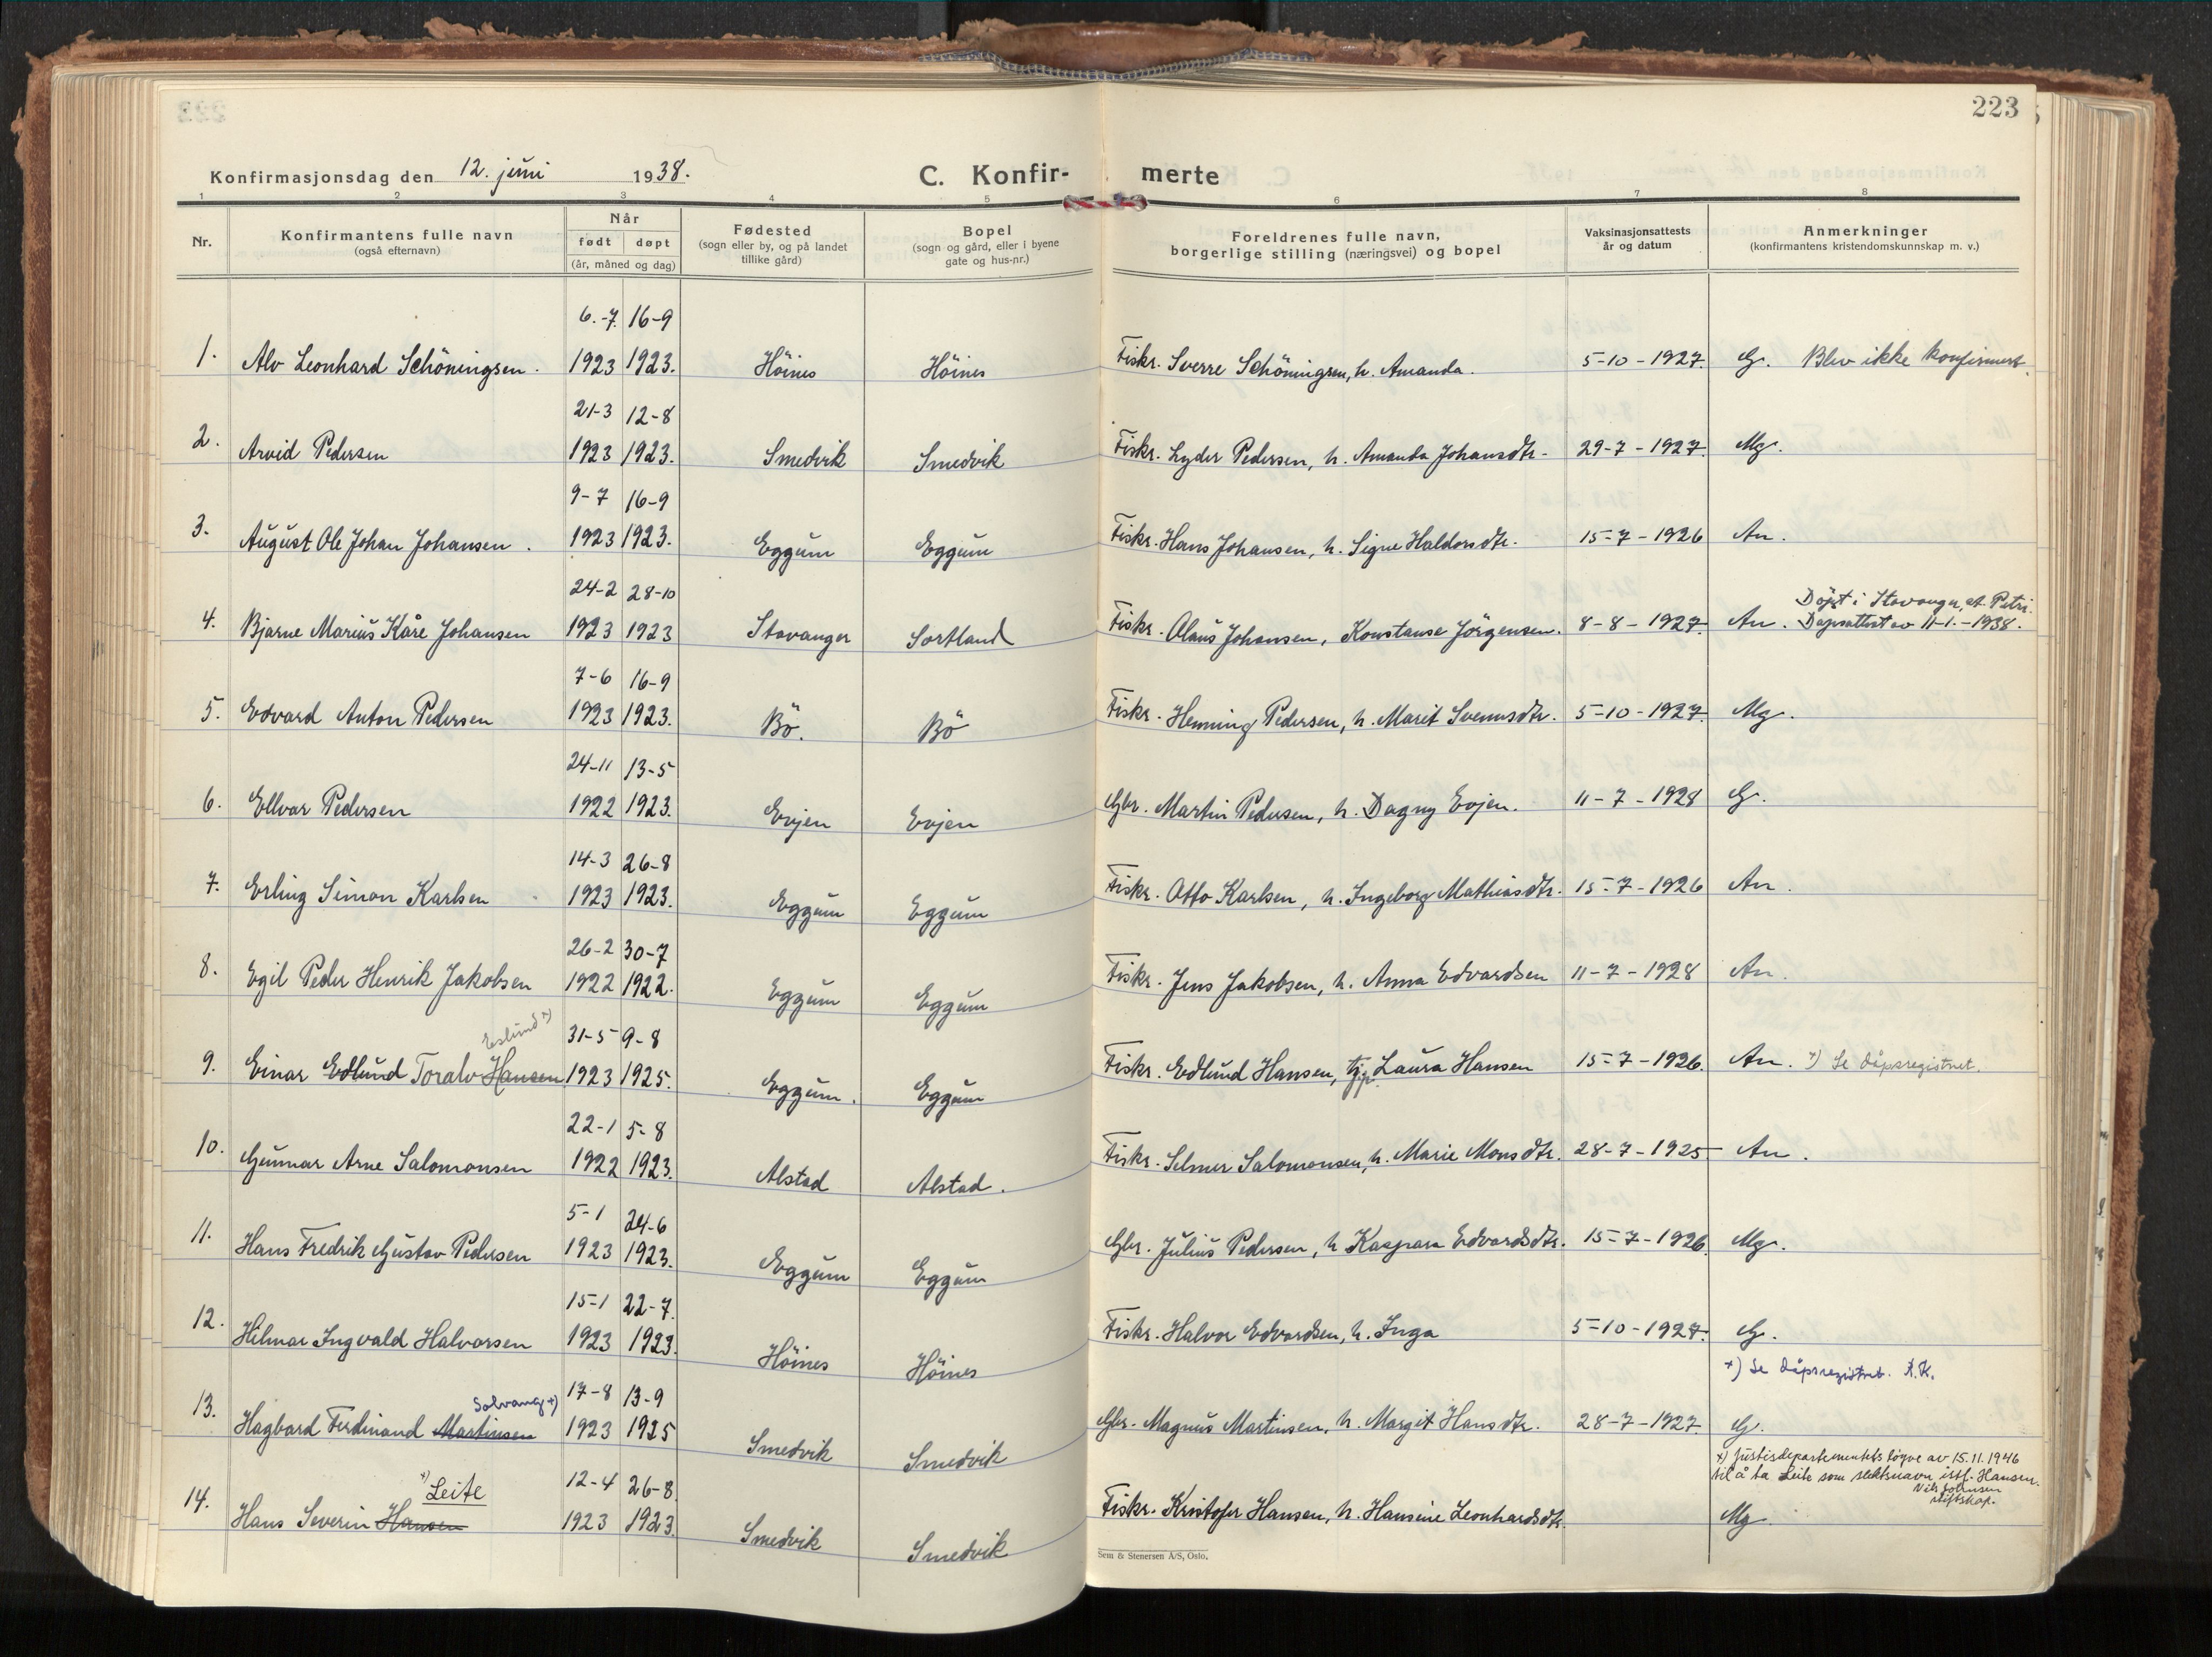 223
Konfirmasjonsdag den 12. juni 1938.
C. Konfir- merte
1 2 3 4 5 6 7 8
Nr.
Konfirmantens fulle navn
(også efternavn)
Når
født døpt
(år, måned og dag)
Fødested
(sogn eller by, og på landet
tillike gård)
Bopel
(sogn og gård, eller i byene
gate og hus-nr.)
Foreldrenes fulle navn,
borgerlige stilling (næringsvei) og bopel
Vaksinasjonsattests
år og datum
Anmerkninger
(konfirmantens kristendomskunnskap m. v.)
6.-7. 16-9
1. Alv Leonhard Schöningsen. 1923 1923. Höines Höines Fiskr. Sverre Schöningsen, h. Amanda. 5-10-1927. G. Blev ikke konfirmert.
21-3 12-8
2. Arvid Pedersen 1923 1923. Smedvik Smedvik Fiskr. Lyder Pedersen, h. Amanda Johansdtr. 29-7-1927. Mg.
9-7 16-9
3. August Ole Johan Johansen. 1923 1923. Eggum Eggum Fiskr. Hans Johansen, h. Signe Haldorsdtr. 15-7-1926 An.
24-2 28-10 Döpt i Stavanger, st. Petri.
4. Bjarne Marius Kåre Johansen 1923 1923 Stavanger Sortland Fiskr. Olaus Johansen, Konstanse Jörgensen. 8-8-1927. An. Dåpsattest av 11-1.-1938.
7-6 16-9
5. Edvard Anton Pedersen 1923 1923. Bö. Bö Fiskr. Henning Pedersen, h. Marit Svennsdtr. 5-10-1927. Mg.
24-11 13-5
6. Ellvar Pedersen 1922 1923. Evjen Evjen Gbr. Martin Pedersen, h. Dagny Evjen. 11-7-1928 G.
14-3 26-8
7. Erling Simon Karlsen 1923 1923. Eggum Eggum Fiskr. Otto Karlsen, h. Ingeborg Mathiasdtr. 15-7-1926 An.
26-2 30-7
8. Egil Peder Henrik Jakobsen 1922 1922. Eggum Eggum Fiskr. Jens Jakobsen, h. Anna Edvardsen 11-7-1928 An.
31-5 9-8
9. Einar Edlund Toralv Hansen 1923 1925. Eggum. Eggum Fiskr. Edlund Hansen, Laura Hansen 15-7-1926. An. x) Se dåpsregistret.
22-1 5-8
10. Gunnar Arne Salomonsen 1922 1923. Alstad Alstad. Fiskr. Selmer Salomonsen, h. Marie Monsdtr. 28-7-1925 An.
5-1 24-6
11. Hans Fredrik Gustav Pedersen 1923 1923. Eggum Eggum Gbr. Julius Pedersen, h Kaspara Edvardsdtr. 15-7-1926. Mg.
15-1 22-7.
12. Hilmar Ingvald Halvorsen 1923 1923. Höines Höines Fiskr. Halvor Edvardsen, h. Inga 5-10-1927. G.
Solvang x) 17-8 13-9 x) Se dåpsregistret. A.K.
13. Hagbard Ferdinand Martinsen 1923 1925 Smedvik Smedvik Gbr. Magnus Martinsen, h. Margit Hansdtr. 28-7-1927. G.
x) Justisdepartementets löyve av 15.11.1946
til å ta Leite som slektsnavn istf. Hansen.
Nils Johnsen
x) Leite 12-4 26-8.
14. Hans Severin Hansen 1923 1923. Smedvik Smedvik Fiskr. Kristofer Hansen, h. Hansine Leonhardsdtr. Mg.
Sem & Stenersen A/S, Oslo.